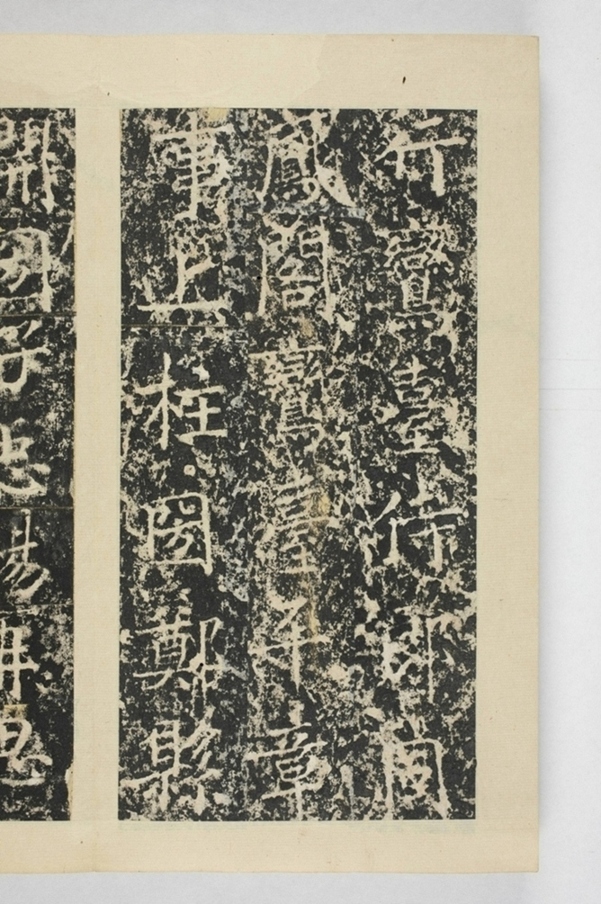 行鸞臺侍郎同
鳳閣鸞臺平章
事上柱圀鄭縣
開圀子𢘑楊再思